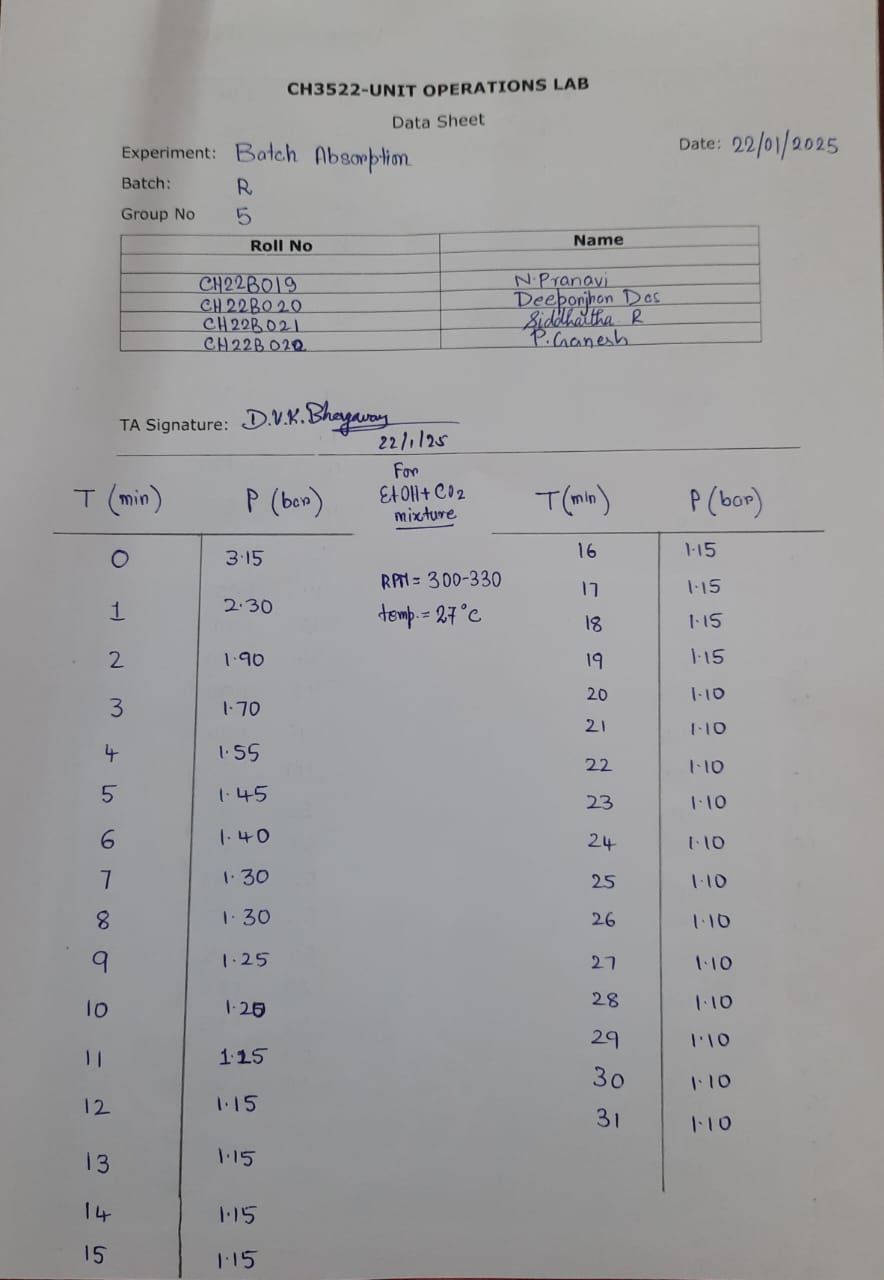 CH3522-UNIT OPERATIONS LAB
Data Sheet
Experiment: Batch Absorption
Date: 22/01/2025
Batch: R
Group No 5
Roll No Name
CH22B019 N.Pranavi
CH22B020 Deeponjhon Das
CH22B021 Siddhartha R
CH22B022 P.Ganesh
TA Signature: D.V.K.
22/1/25
For
EtOH+CO2
mixture
RPM = 300-330
temp. = 27°C
T (min) P (bar)
0 3.15
1 2.30
2 1.90
3 1.70
4 1.55
5 1.45
6 1.40
7 1.30
8 1.30
9 1.25
10
11
12 1.15
13 1.15
14 1.15
15 1.15
T(min) P (bar)
16 1.15
17 1.15
18 1.15
19 1.15
20 1.10
21 1.10
22 1.10
23 1.10
24 1.10
25 1.10
26 1.10
27 1.10
28 1.10
29 1.10
30 1.10
31 1.10